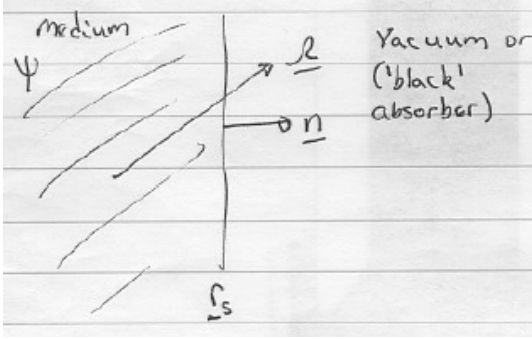 medium
Vacuum or
('black'
absorber)
ψ
Ω
n
r_s